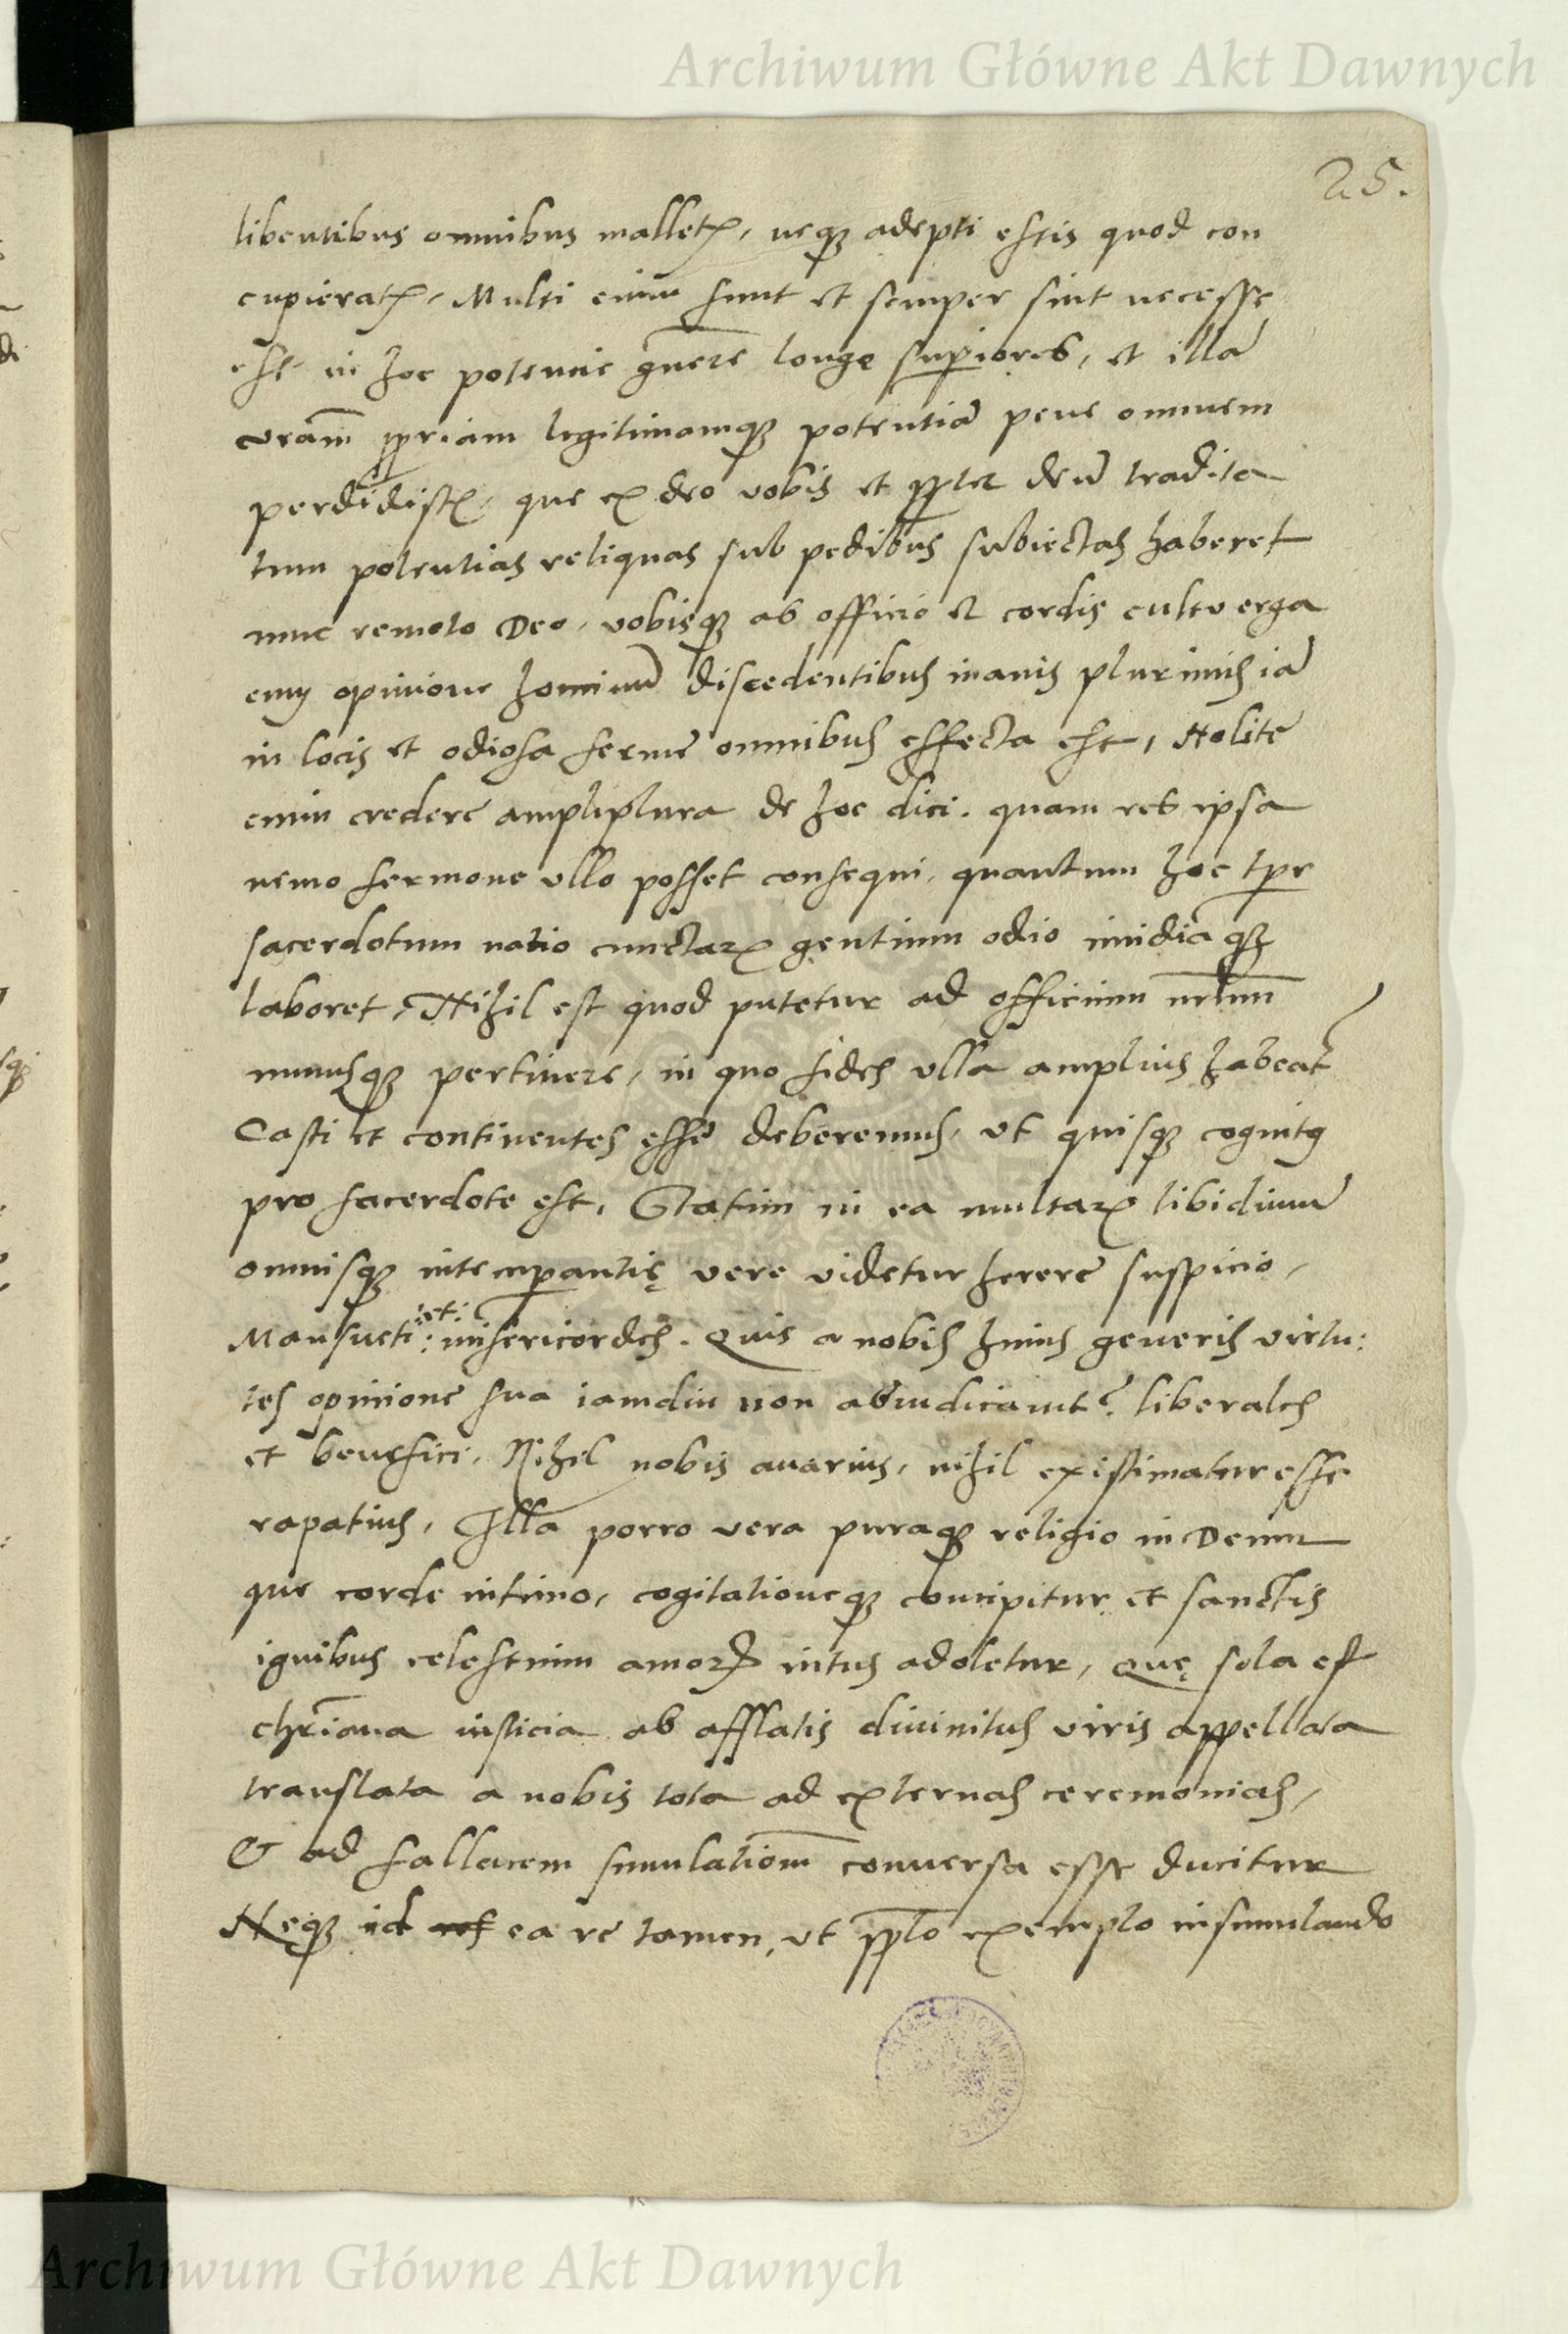 Archiwum Główne Akt Dawnych
25.
libentibus omnibus malletꝭ, neqꝫ adepti estis quod con
cupieratꝭ, Multi enim sunt et semper sint necesse
est in hoc potencie gn̄ere longe suꝑiores, et illā
vr̄am ꝓpriam legitimamqꝫ potentiā pene omnem
perdidistꝭ, que ex deo vobis et ꝓpter deū tradita
tum potentias reliquas sub pedibus subiectas haberet
nunc remoto Deo, vobisqꝫ ab officio et cordis cultu erga
eum opinione hominū discedentibus inanis plurimis iā
in locis et odiosa ferme omnibus effecta est, Nolite
enim credere ampliplura de hoc dici. quam res ipsa
nemo sermone ullo posset consequi, quantum hoc tꝑr
sacerdotum natio cunctaꝝ gentium odio inuidiaqꝫ
laboret, Nihil est quod putetur ad officium nr̄tum
munusqꝫ pertinere, in quo fides ulla amplius habeat᷑
Casti et continentes esse deberemus, ut quisqꝫ cognitꝯ
pro sacerdote est, Statim in ea multaꝝ libidinū
omnisqꝫ intemꝑantię vere videtur herere suspicio,
Mansueti :et: misericordes. Quis a nobis huius generis virtu:
tes opinione sua iamdiu non abiudicauit? liberales
et benefici, Nihil nobis auarius, nihil existimatur esse
rapatius, Illa porro vera puraqꝫ religio in Deum
que corde intimo, cogitationeqꝫ concipitur et sanctis
ignibus celestium amoꝝ intus adoletur, quę sola est
chr̄iana iusticia ab afflatis diuinitus viris appellata
translata a nobis tota ad externas ceremonias,
& ad fallacem simulatiōem conuersa esse ducitur
Neqꝫ id ea re tamen, ut ꝓpło exemplo insimulando
Archiwum Główne Akt Dawnych